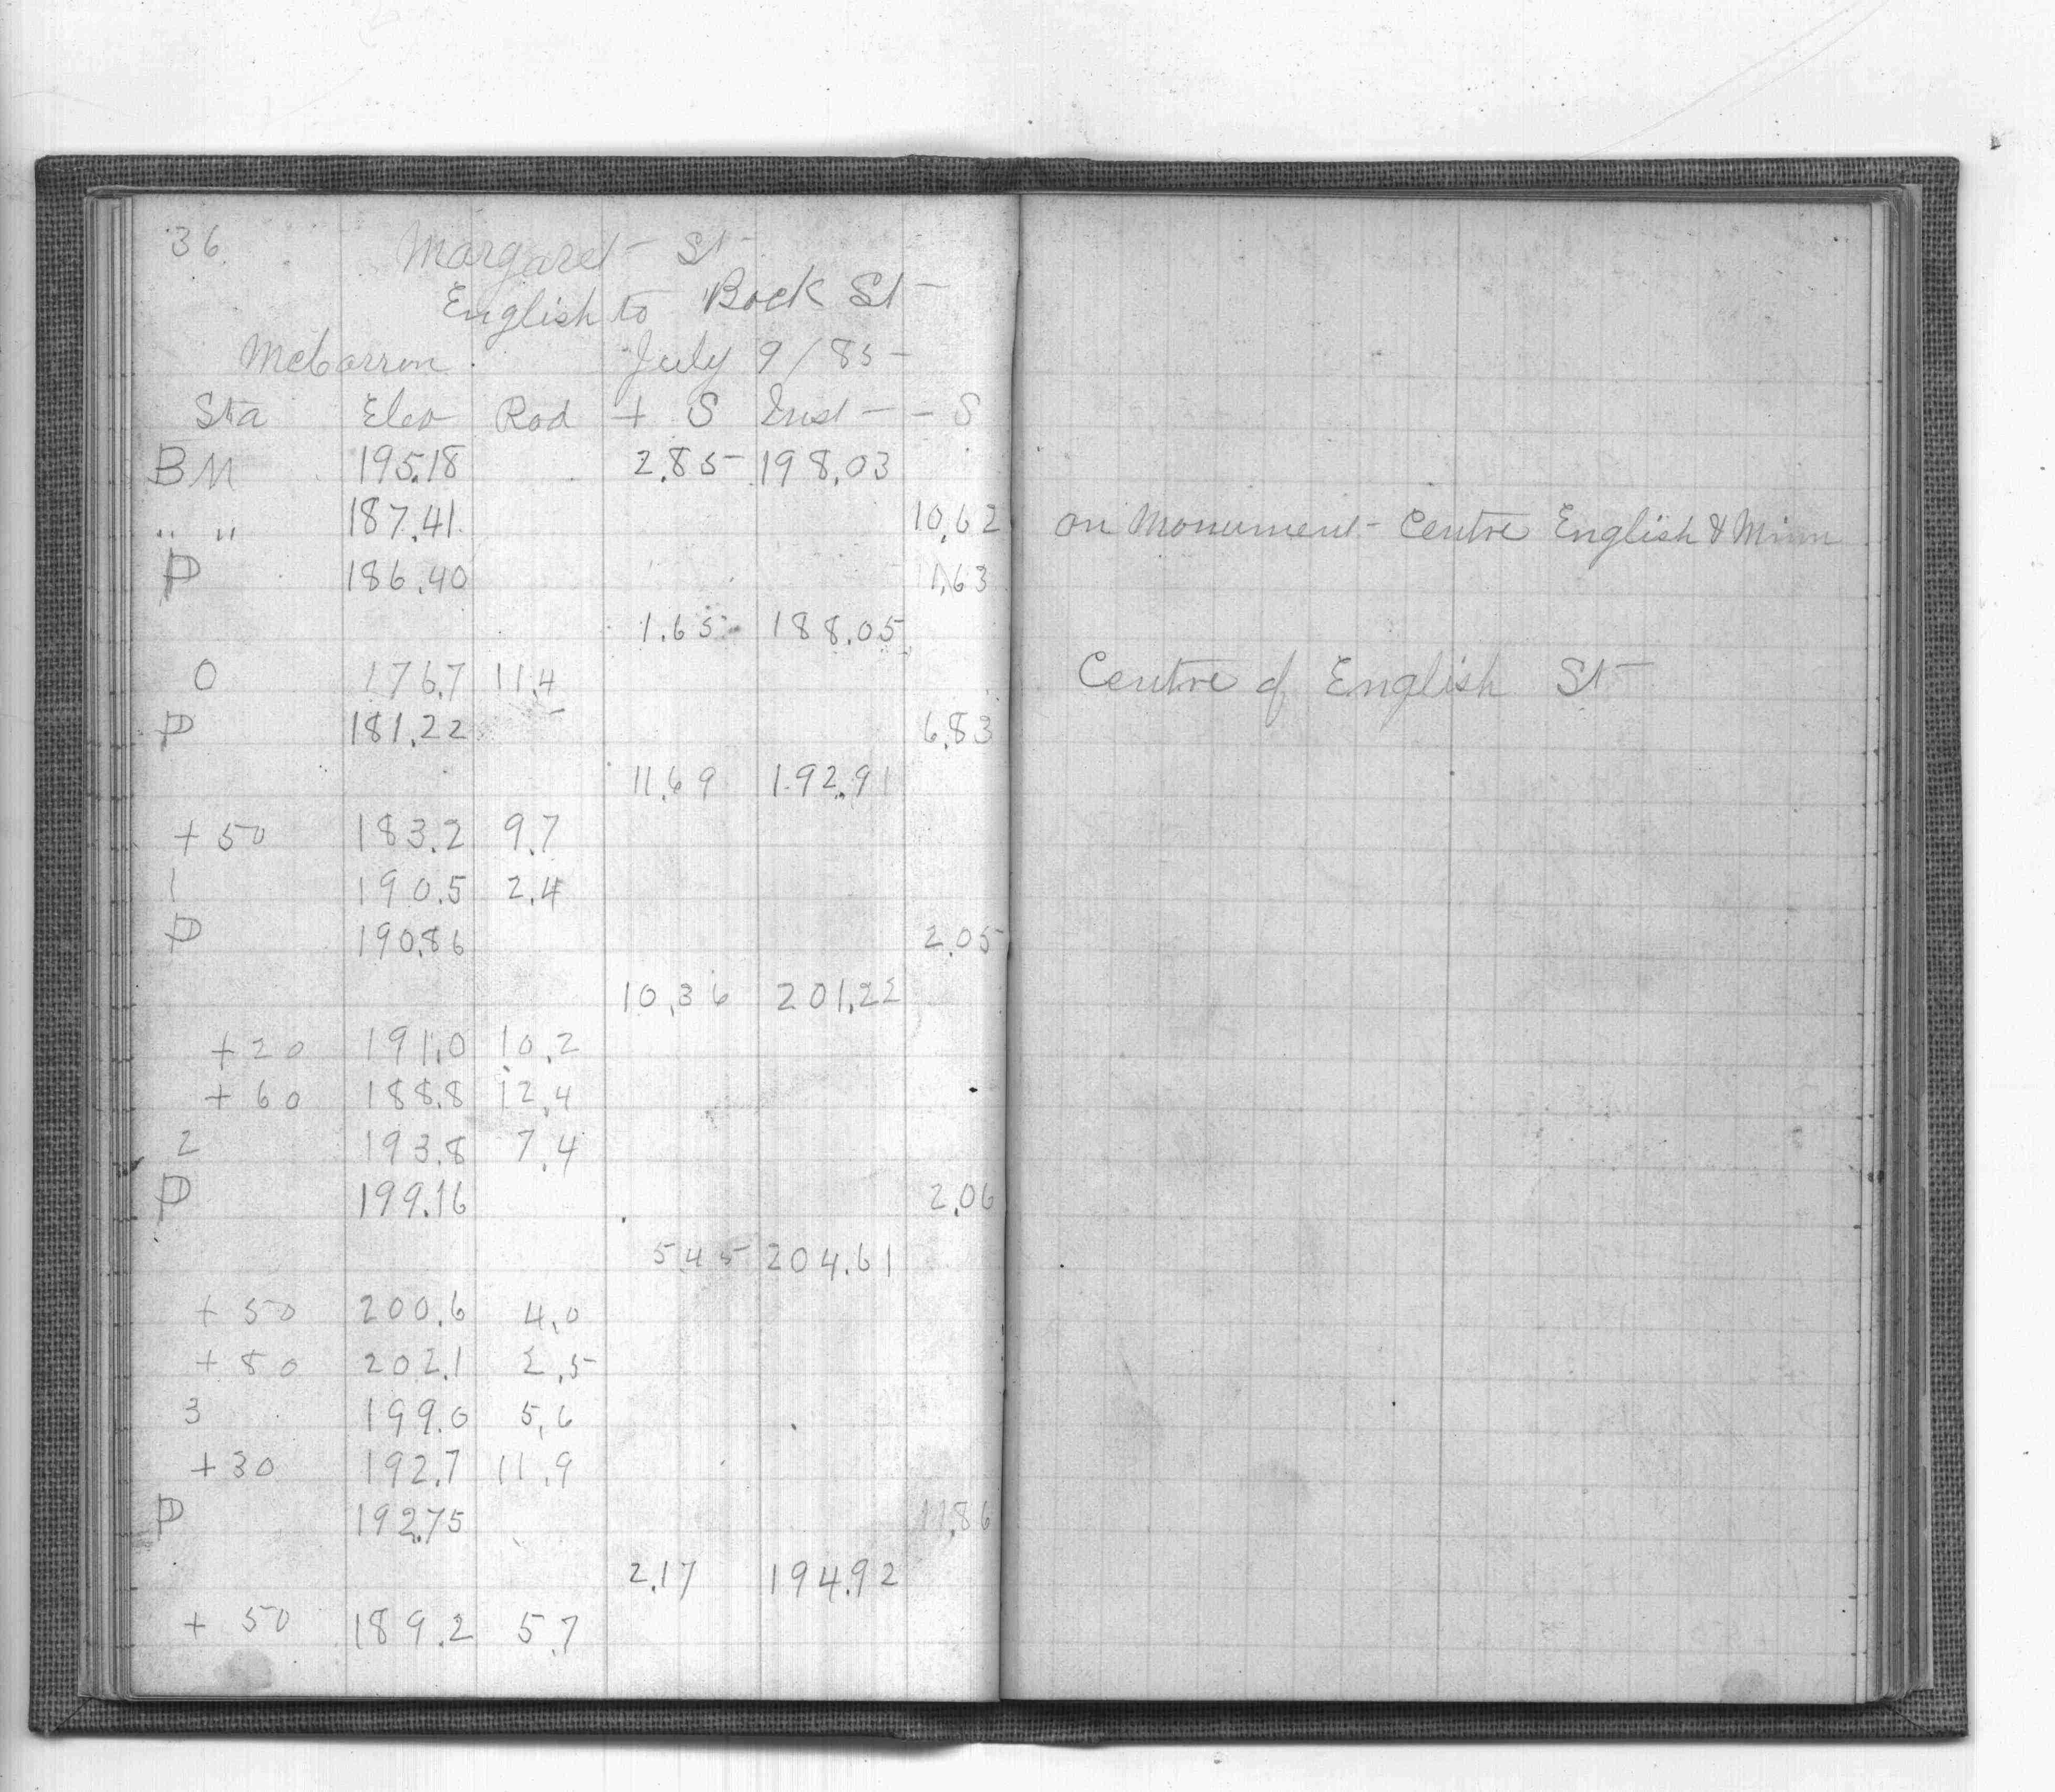 36
Margaret St
English to Bock St
McCarron July 9/85
Sta Elev Rod + S Inst - S
BM 195.18 2.85 198.03
" " 187.41 10.62 on Monument Centre English & Minn
P 186.40 1.63
1.65 188.05
0 176.7 11.4 Centre of English St
P 181.22 6.83
11.69 192.91
+ 50 183.2 9.7
1 190.5 2.4
P 190.86 2.05
10.36 201.22
+ 20 191.0 10.2
+ 60 188.8 12.4
2 193.8 7.4
P 199.16 2.06
5.45 204.61
+ 50 200.6 4.0
+ 80 202.1 2.5
3 199.0 5.6
+30 192.7 11.9
P 192.75 11.86
2.17 194.92
+ 50 189.2 5.7